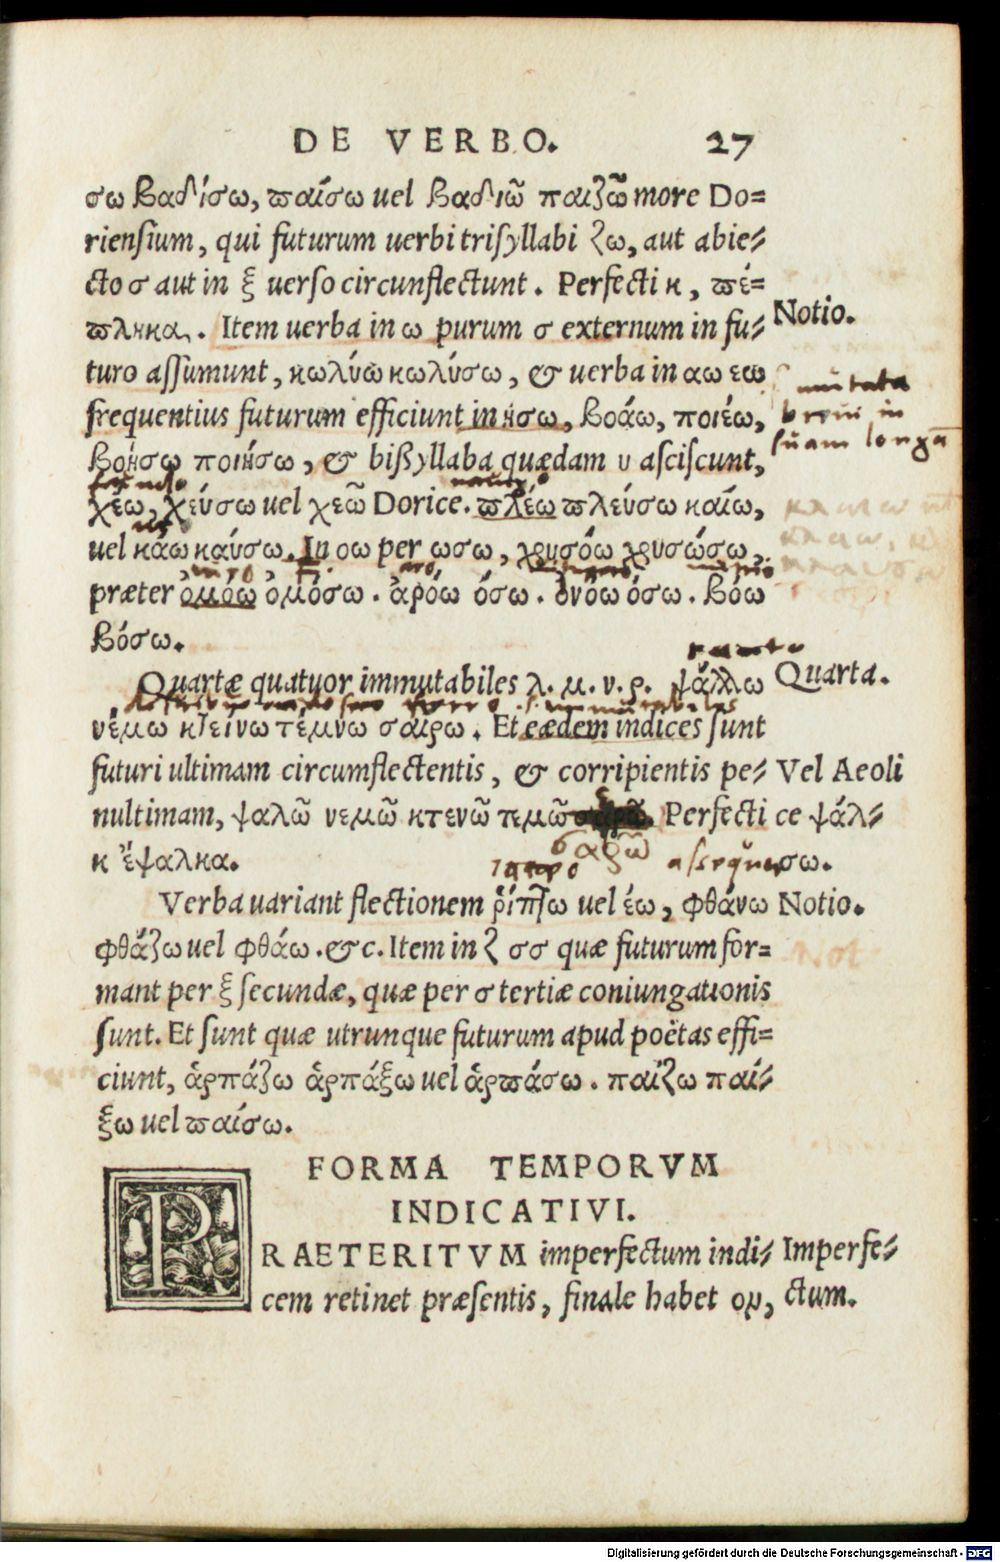 DE VERBO. 27
σω βαδίσω, παίσω uel βαδιῶ παιζῶ more Do=
riensium, qui futurum uerbi trisyllabi ζω, aut abie-
cto σ aut in ξ uerso circunflectunt. Perfecti κ, πέ=
πληκα. Item uerba in ω purum σ externum in fu-
Notio.
turo assumunt, κωλύω κωλύσω, & uerba in αω εω
mutata
frequentius futurum efficiunt in ησω, βοάω, ποιέω,
breui in
suam longā
βοήσω ποιήσω, & bißyllaba quædam υ asciscunt,
χέω, χεύσω uel χεῶ Dorice. πλέω πλεύσω καίω,
uel κάω καύσω. In οω per ωσω, χρυσόω χρυσώσω,
præter ὀμόω ὀμόσω. ἀρόω όσω. ὀνόω όσω. βόω
βόσω.
Quartæ quatuor immutabiles λ. μ. ν. ρ. ψάλλω
Quarta.
νέμω κτείνω τέμνω σαίρω. Et eædem indices sunt
futuri ultimam circumflectentis, & corripientis pe-
Vel Aeoli
nultimam, ψαλῶ νεμῶ κτενῶ τεμῶ Perfecti
ce ψάλ-
σαρῶ
κ ἔψαλκα.
σω.
Verba uariant flectionem ῥίπτω uel έω, φθάνω
Notio.
φθάζω uel φθάω. &c. Item in ζ σσ quæ futurum for=
mant per ξ secundæ, quæ per σ tertiæ coniungationis
sunt. Et sunt quæ utrunque futurum apud poëtas effi=
ciunt, ἁρπάζω ἁρπάξω uel ἁρπάσω. παίζω παί-
ξω uel παίσω.
FORMA TEMPORVM
INDICATIVI.
PRAETERITVM imperfectum indi-
Imperfe-
cem retinet præsentis, finale habet ον,
ctum.
Digitalisierung gefördert durch die Deutsche Forschungsgemeinschaft - DFG